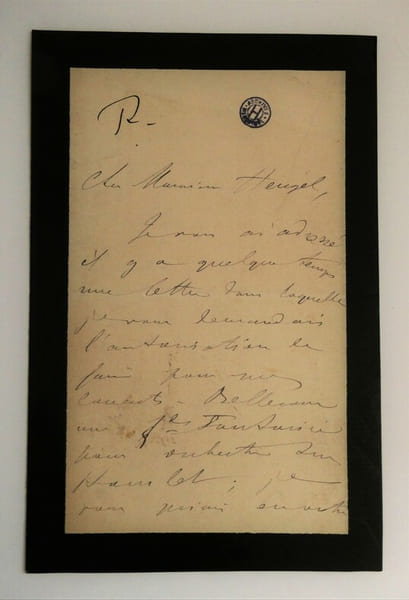 R-
H
Cher Monsieur Heugel,
Je vous ai adressé
il y a quelque temps
une lettre dans laquelle
je vous demandais
l'autorisation de
faire pour mes
concerts - Bellecour
une gde Fantaisie
pour orchestre sur
Hamlet ; je
vous priais en outre